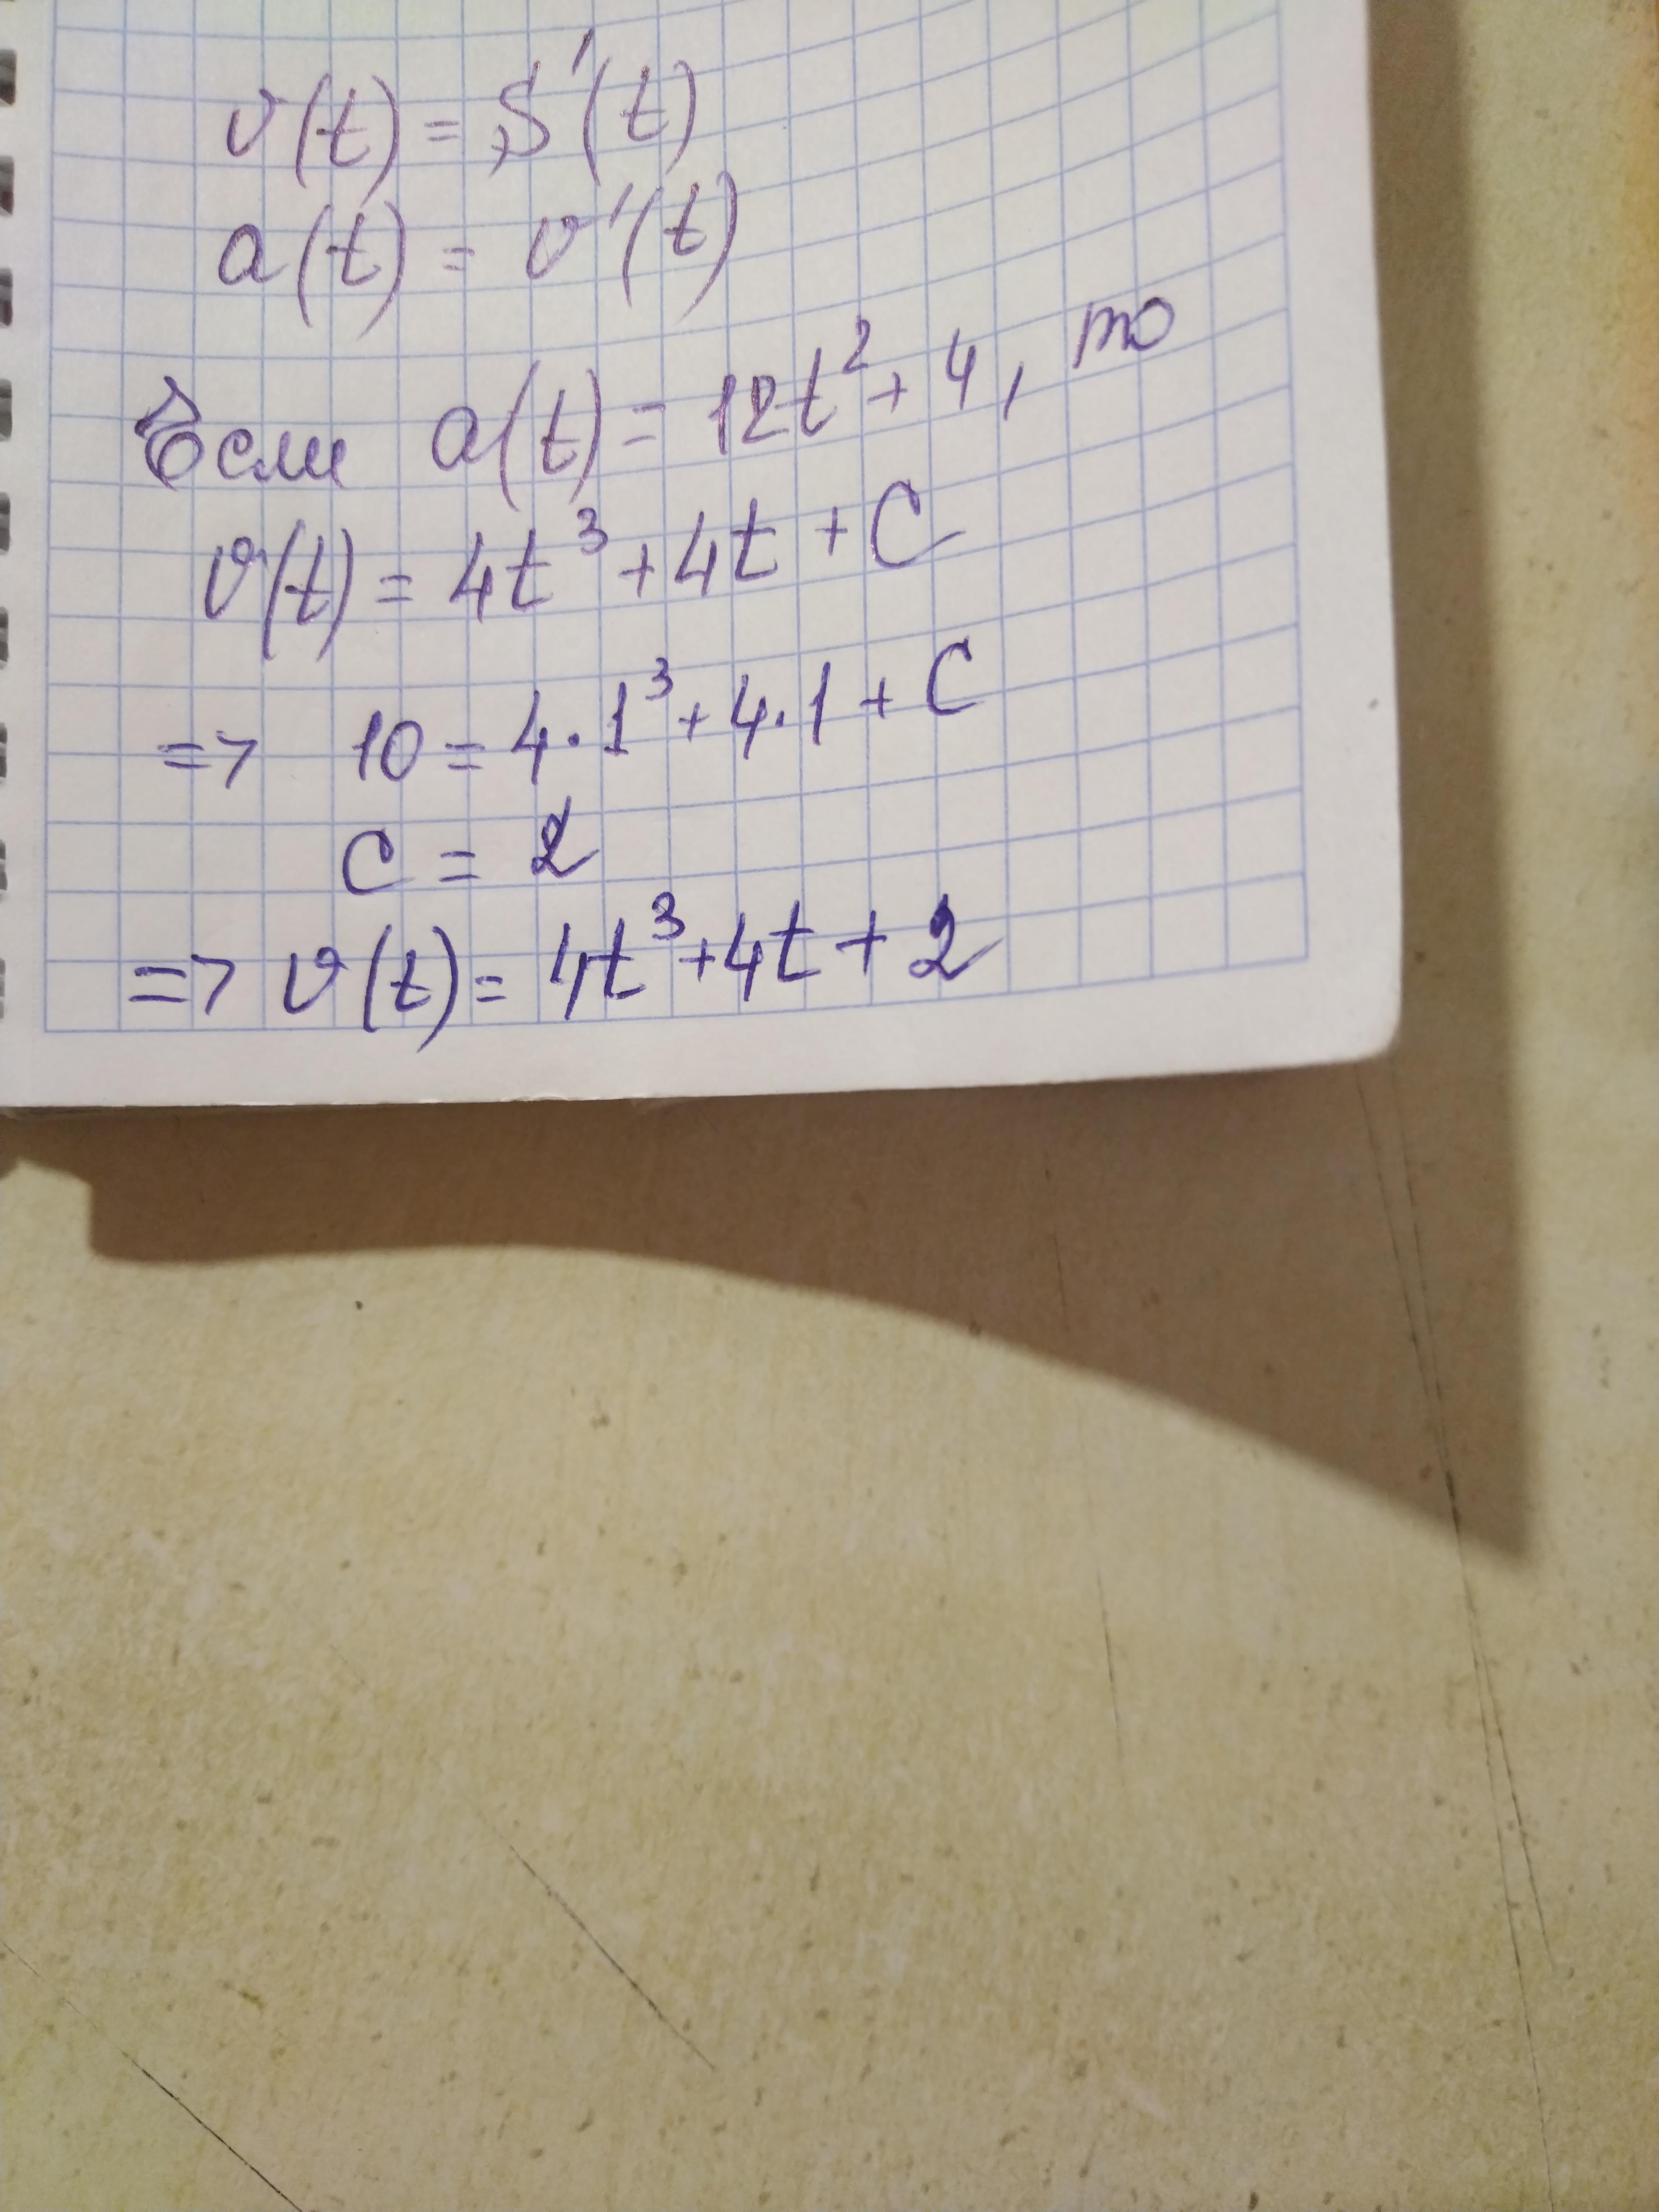 v(t) = S'(t)
a(t) = v'(t)
Если a(t) = 12t² + 4, то
v(t) = 4t³ + 4t + C
=> 10 = 4·1³ + 4·1 + C
C = 2
=> v(t) = 4t³ + 4t + 2